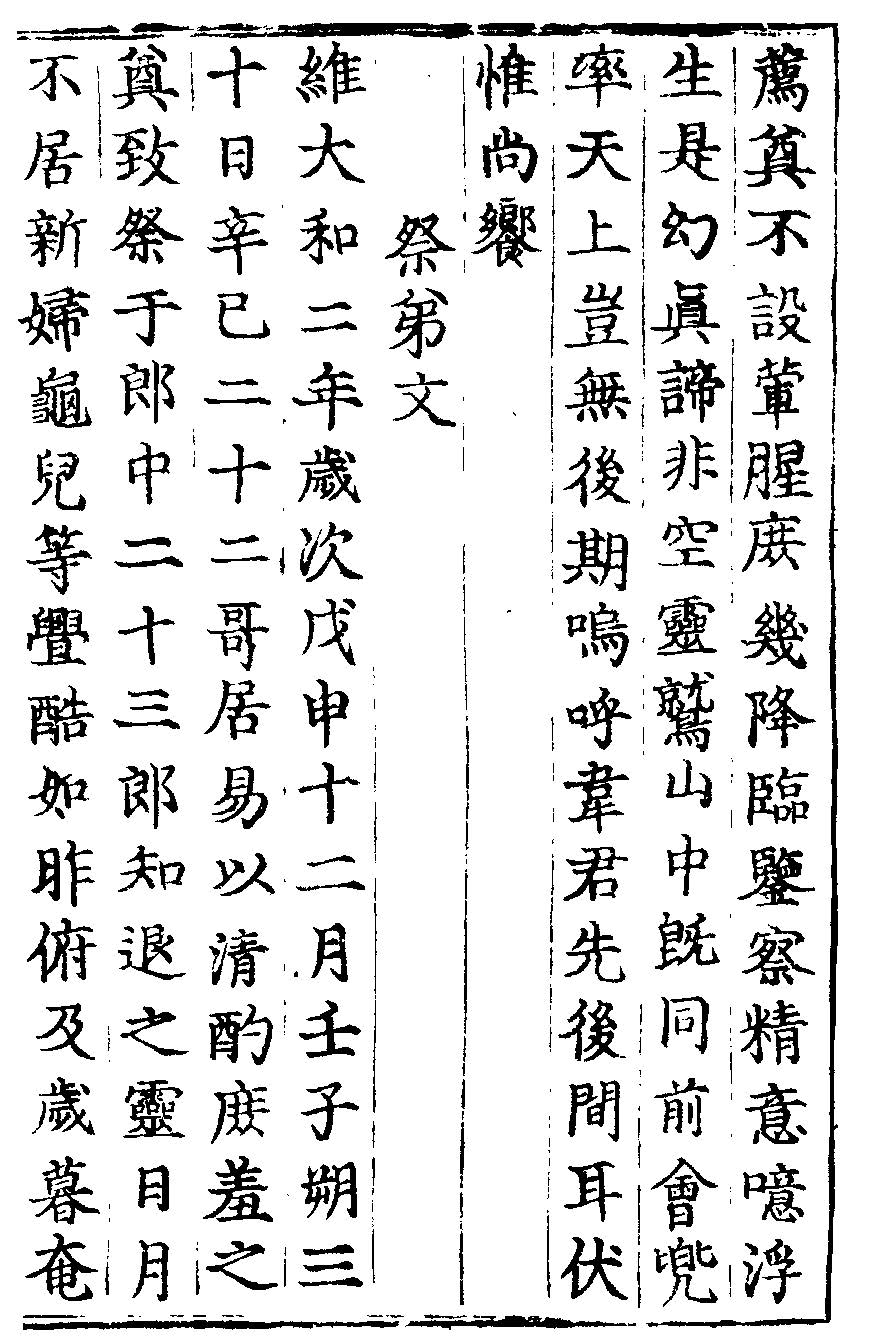 薦奠不設葷腥庶幾降臨鑒察精意噫浮
生是幻眞諦非空靈鷲山中旣同前會兜
率天上豈無後期嗚呼韋君先後間耳伏
惟尚饗
祭弟文
維大和二年歲次戊申十二月壬子朔三
十日辛巳二十二哥居易以清酌庶羞之
奠致祭于郎中二十三郎知退之靈日月
不居新婦龜兒等舋酷如昨俯及歲暮奄